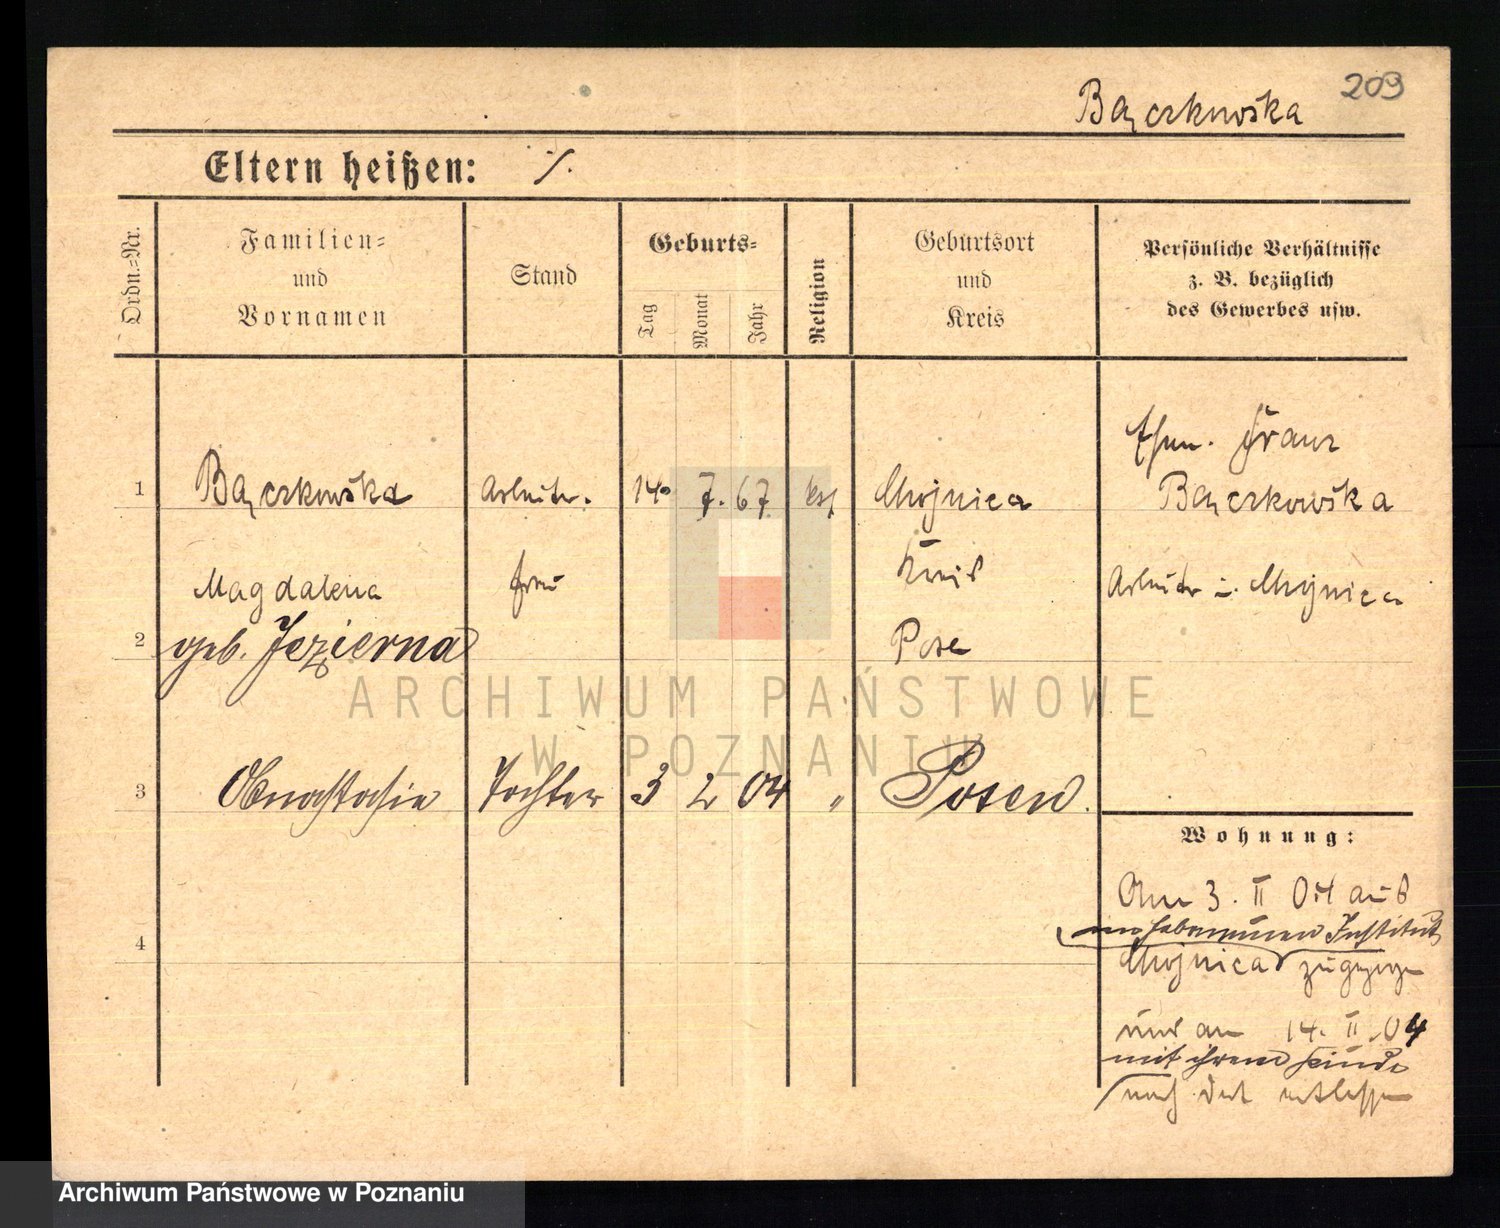 209
Bączkowska
Eltern heißen: ./.
Ordn.-Nr.
Familien-
und
Vornamen
Stand
Geburts-
Tag
Monat
Jahr
Religion
Geburtsort
und
Kreis
Persönliche Verhältnisse
z. B. bezüglich
des Gewerbes usw.
Franz
1 Bączkowska Arbeiter- 14. 7. 67 kath Chojnica Bączkowska
Magdalena frau Kreis Arbeiter i. Chojnica
2 geb. Jezierna Posen
ARCHIWUM PAŃSTWOWE
W POZNANIU
3 Anastasie Tochter 3 2 04 " Posen.
Wohnung:
Am 3. II 04 aus
Hebammen Institut
4
Chojnica zugezogen
und am 14. II. 04
mit ihrem Kinde
nach dort entlassen
Archiwum Państwowe w Poznaniu